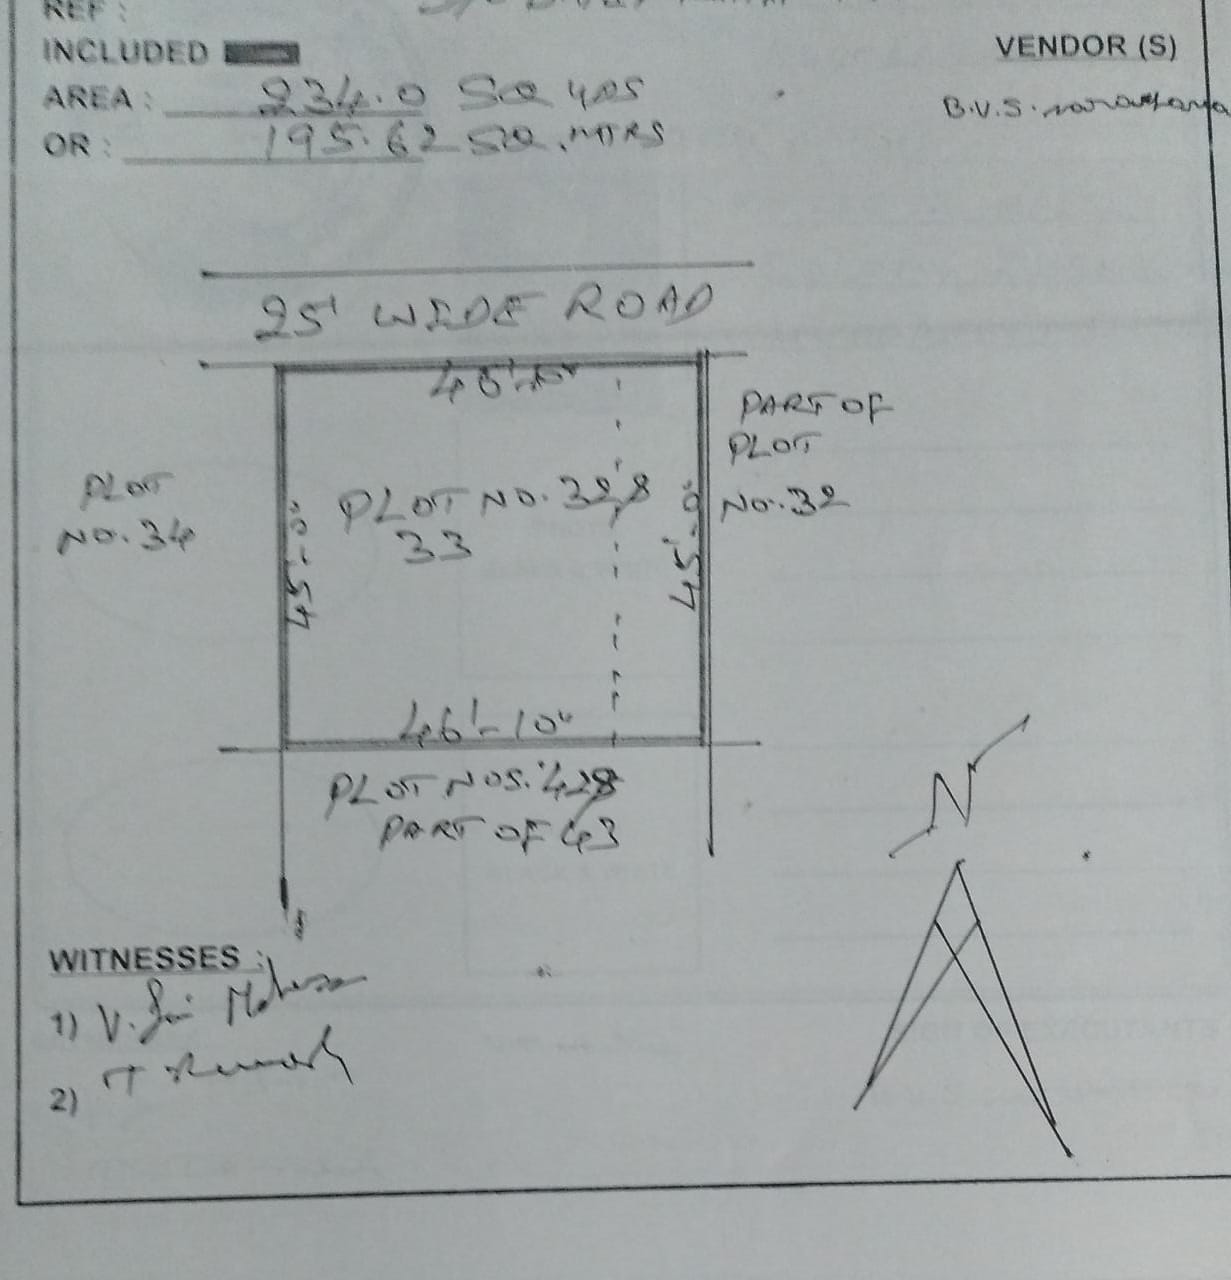 REF :
INCLUDED
AREA : 234.0 SQ YDS
OR : 195.62 SQ. MTRS
VENDOR (S)
B.V.S.
25' WIDE ROAD
PLOT
NO. 34
45'-0"
PLOT NO. 32 &
33
45'-0"
PART OF
PLOT
NO. 32
46'-10"
PLOT NOS. 42 &
PART OF 43
N
WITNESSES :
1) V. Sai
2)